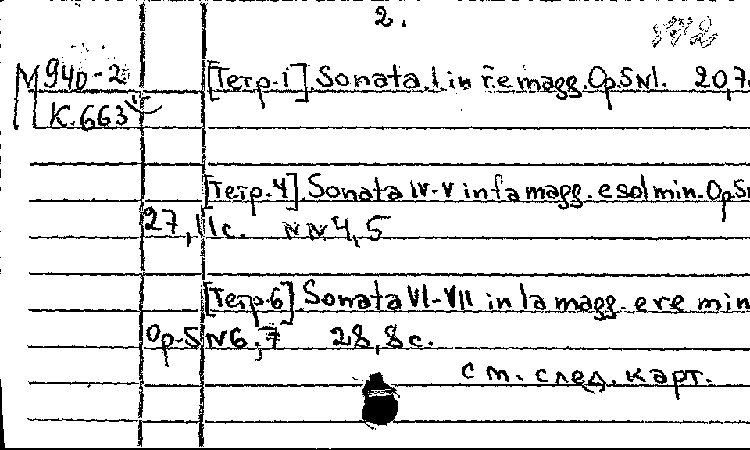 2.
М 940-2 [Тетр.1]. Sonata I in re magg. Op5N1. 20,7
К.663
[Тетр.4]. Sonata IV-V in fa magg. e sol min. Op5
27,11с. NN4,5
[Тетр.6]. Sonata VI-VII in la magg. e re min
Op.5 N6,7 28,8с.
см. след. карт.